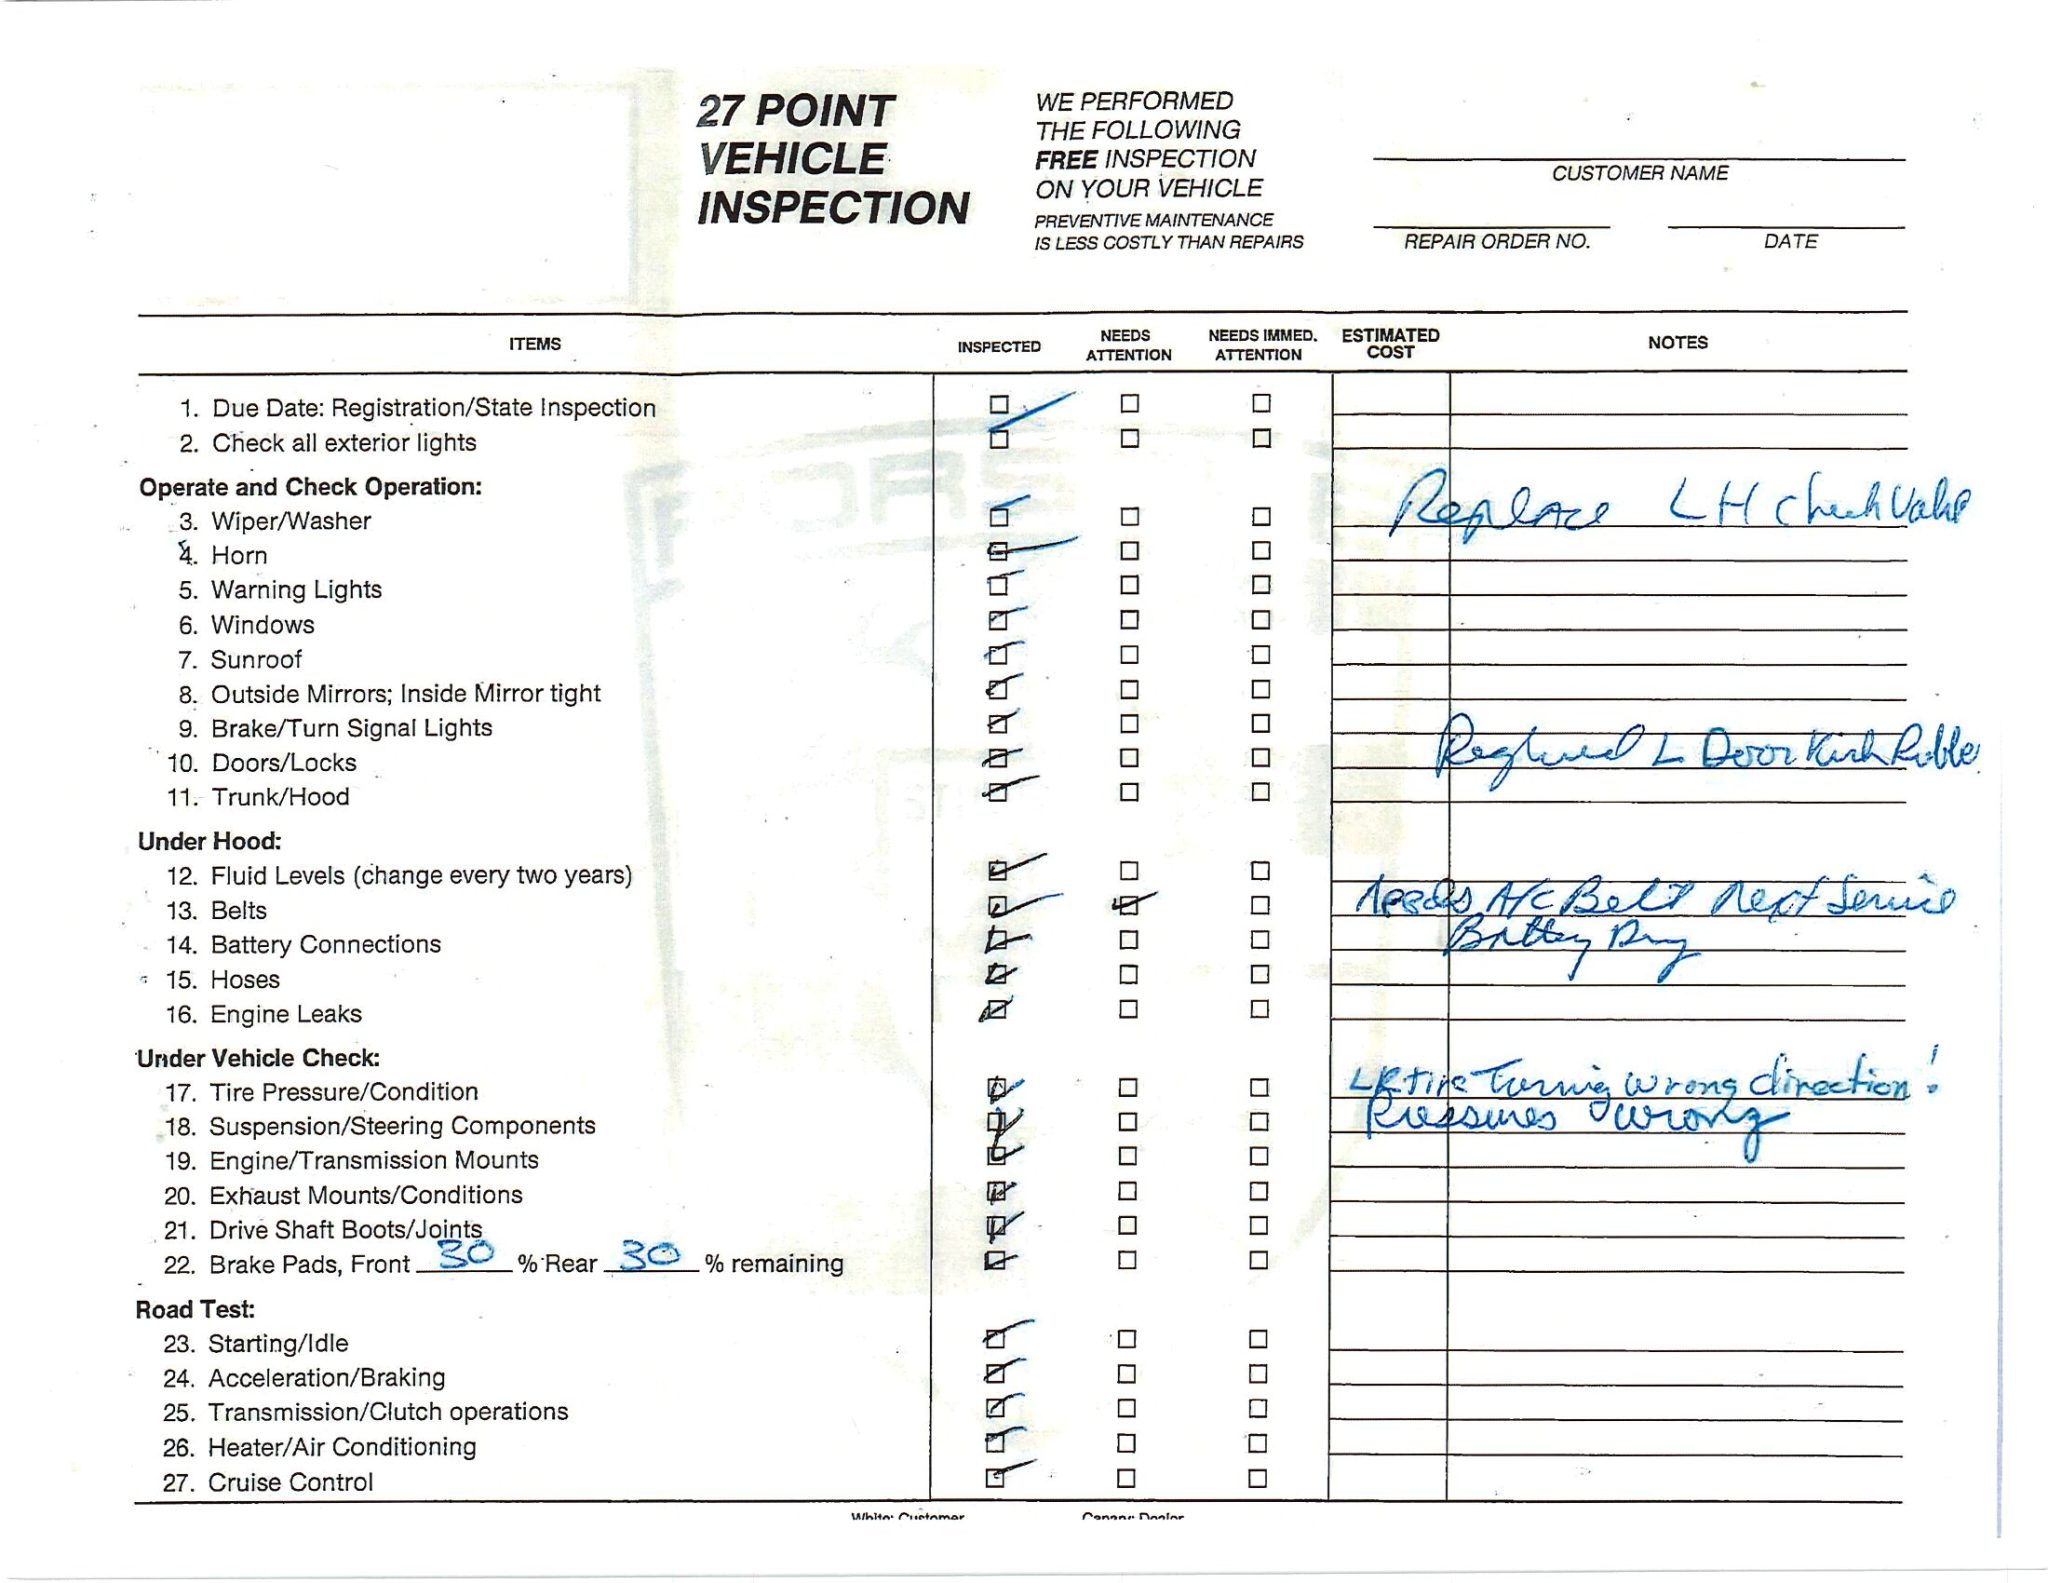 27 POINT
VEHICLE
INSPECTION
WE PERFORMED
THE FOLLOWING
FREE INSPECTION
ON YOUR VEHICLE
PREVENTIVE MAINTENANCE
IS LESS COSTLY THAN REPAIRS
CUSTOMER NAME
REPAIR ORDER NO. DATE
ITEMS INSPECTED NEEDS ATTENTION NEEDS IMMED. ATTENTION ESTIMATED COST NOTES
1. Due Date: Registration/State Inspection
2. Check all exterior lights
Operate and Check Operation:
3. Wiper/Washer Replace LH Check Valve
4. Horn
5. Warning Lights
6. Windows
7. Sunroof
8. Outside Mirrors; Inside Mirror tight
9. Brake/Turn Signal Lights
10. Doors/Locks L Door
11. Trunk/Hood
Under Hood:
12. Fluid Levels (change every two years)
13. Belts Needs A/C Belt Next Service
14. Battery Connections Battery
15. Hoses
16. Engine Leaks
Under Vehicle Check:
17. Tire Pressure/Condition tire Turning wrong direction!
18. Suspension/Steering Components Pressures wrong
19. Engine/Transmission Mounts
20. Exhaust Mounts/Conditions
21. Drive Shaft Boots/Joints
22. Brake Pads, Front 30 % Rear 30 % remaining
Road Test:
23. Starting/Idle
24. Acceleration/Braking
25. Transmission/Clutch operations
26. Heater/Air Conditioning
27. Cruise Control
White: Customer Canary: Dealer